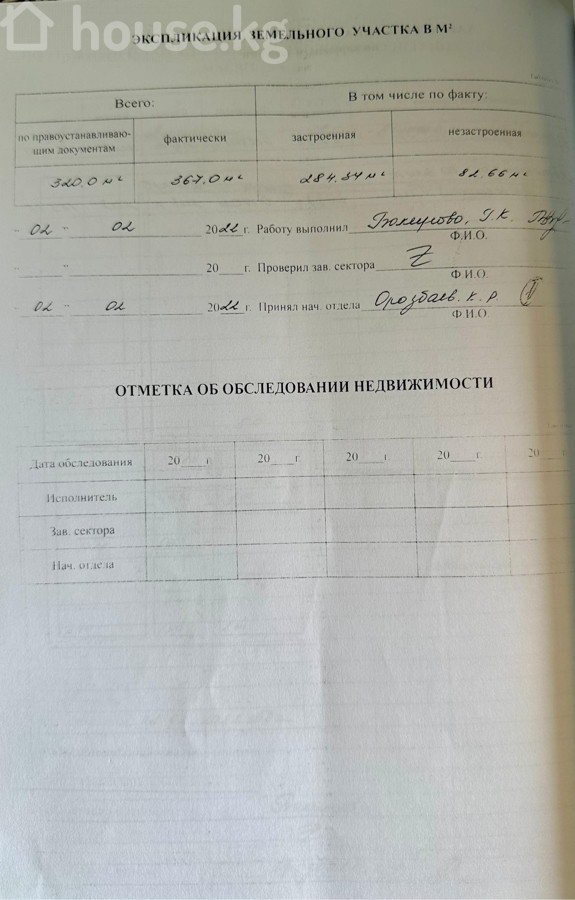 house.kg
ЭКСПЛИКАЦИЯ ЗЕМЕЛЬНОГО УЧАСТКА В М²
Всего:
В том числе по факту:
по правоустанавливаю-
щим документам
фактически
застроенная
незастроенная
320,0 м² 367,0 м² 284,34 м² 82,66 м²
" 02 " 02 2022 г. Работу выполнил Г.К.
Ф.И.О.
" " 20 г. Проверил зав. сектора
Ф.И.О.
" 02 " 02 2022 г. Принял нач. отдела Орозбаев. К. Р.
Ф.И.О
ОТМЕТКА ОБ ОБСЛЕДОВАНИИ НЕДВИЖИМОСТИ
Дата обследования 20___г 20___г. 20___г 20___г. 20
Исполнитель
Зав. сектора
Нач. отдела